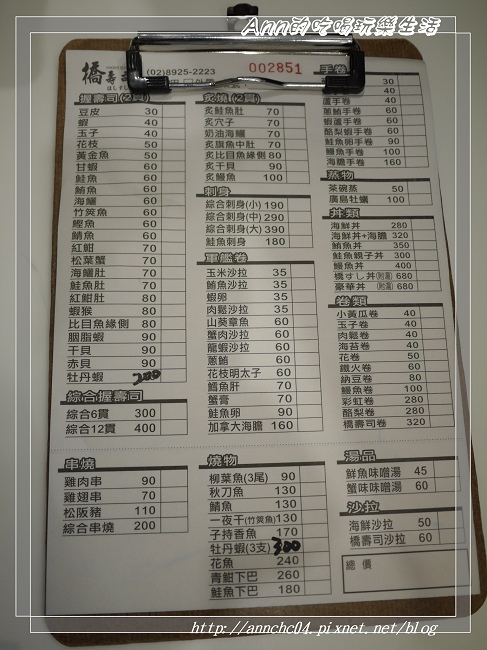 Ann的吃喝玩樂生活
橋壽司
(02)8925-2223
002851
握壽司(2貫)
豆皮 30
蝦 40
玉子 40
花枝 50
黃金魚 50
甘蝦 60
鮭魚 60
鮪魚 60
海鱺 60
竹筴魚 60
鰹魚 60
鯖魚 60
紅魽 70
松葉蟹 70
海鱺肚 70
鮭魚肚 70
紅魽肚 80
蝦猴 80
比目魚緣側 80
胭脂蝦 90
干貝 90
赤貝 90
牡丹蝦 200
綜合握壽司
綜合6貫 300
綜合12貫 400
炙燒(2貫)
炙鮭魚肚 70
炙穴子 70
奶油海鱺 70
炙旗魚中肚 70
炙比目魚緣側 80
炙干貝 90
炙鰻魚 100
刺身
綜合刺身(小) 190
綜合刺身(中) 290
綜合刺身(大) 390
鮭魚刺身 180
軍艦卷
玉米沙拉 35
鮪魚沙拉 35
蝦卵 35
肉鬆沙拉 35
山葵章魚 60
蟹肉沙拉 60
龍蝦沙拉 60
蔥鮪 60
花枝明太子 60
鱈魚肝 70
蟹膏 70
鮭魚卵 90
加拿大海膽 160
手卷
30
40
蘆手卷 40
蔥鮪手卷 60
蝦蘆手卷 60
酪梨蝦手卷 60
鮭魚卵手卷 90
鰻魚手卷 100
海膽手卷 160
蒸物
茶碗蒸 50
廣島牡蠣 100
丼類
海鮮丼 280
海鮮丼+海膽 320
鮪魚丼 350
鮭魚親子丼 300
鰻魚丼 400
橋すし丼(附湯) 680
豪華丼(附湯) 680
卷類
小黃瓜卷 40
玉子卷 40
肉鬆卷 40
海苔卷 40
花卷 50
鐵火卷 60
納豆卷 80
鰻魚卷 100
彩虹卷 280
酪梨卷 280
橋壽司卷 320
串燒
雞肉串 90
雞翅串 70
松阪豬 110
綜合串燒 200
燒物
柳葉魚(3尾) 90
秋刀魚 130
鯖魚 130
一夜干(竹筴魚) 130
子持香魚 170
牡丹蝦(3支) 300
花魚 240
青魽下巴 260
鮭魚下巴 180
湯品
鮮魚味噌湯 45
蟹味味噌湯 60
沙拉
海鮮沙拉 50
橋壽司沙拉 60
總價
http://annchc04.pixnet.net/blog